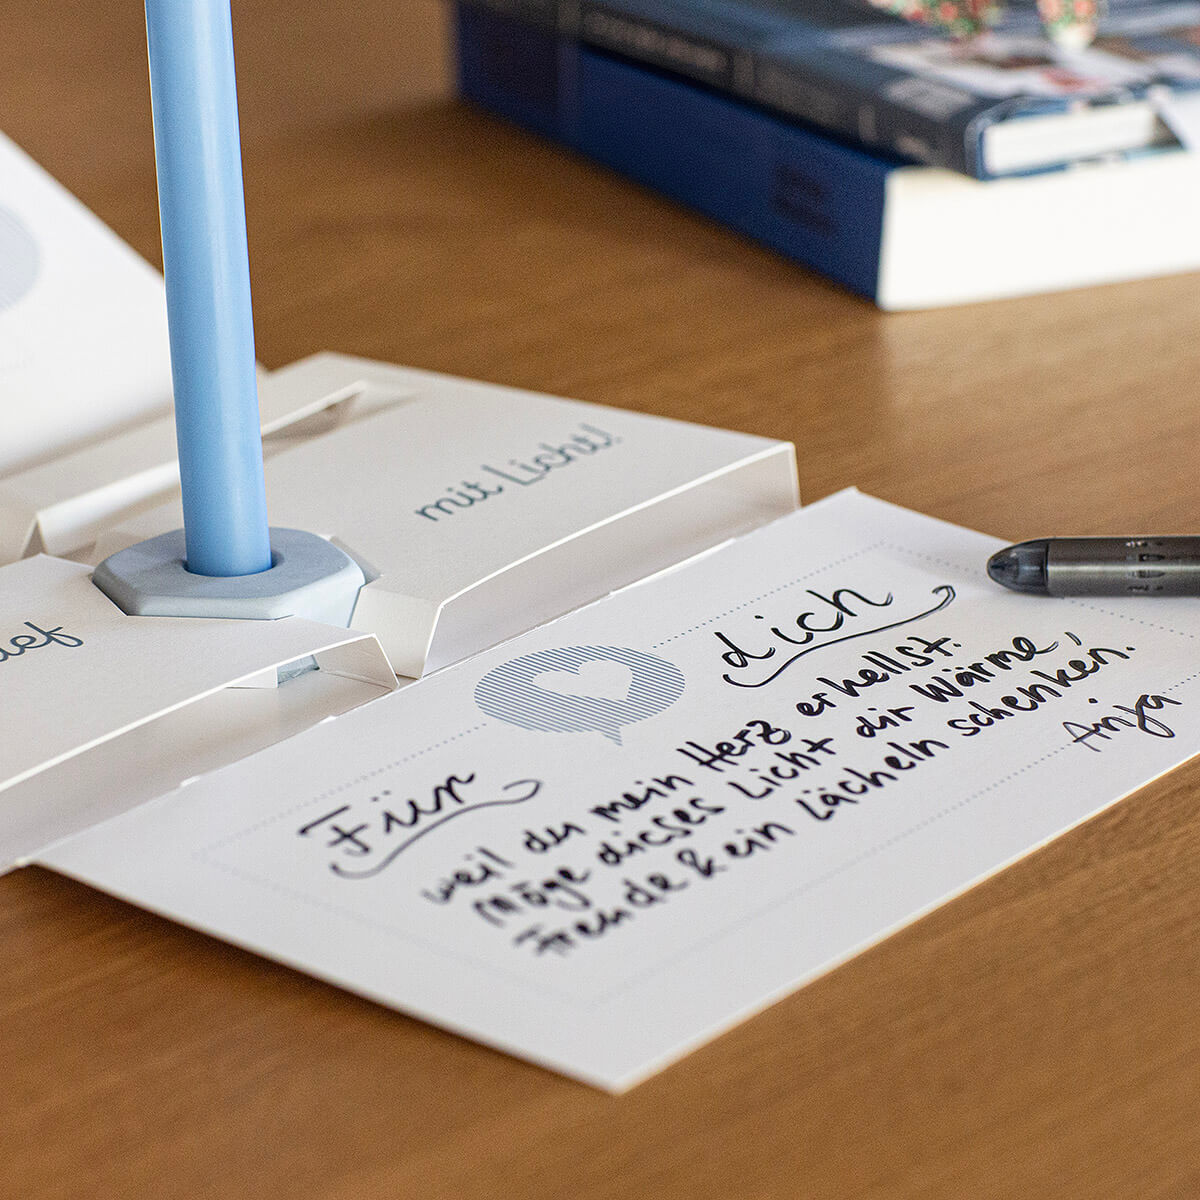 mit Licht!
Für dich
weil du mein Herz erhellst.
Möge dieses Licht dir Wärme,
Freude & ein Lächeln schenken.
Anja